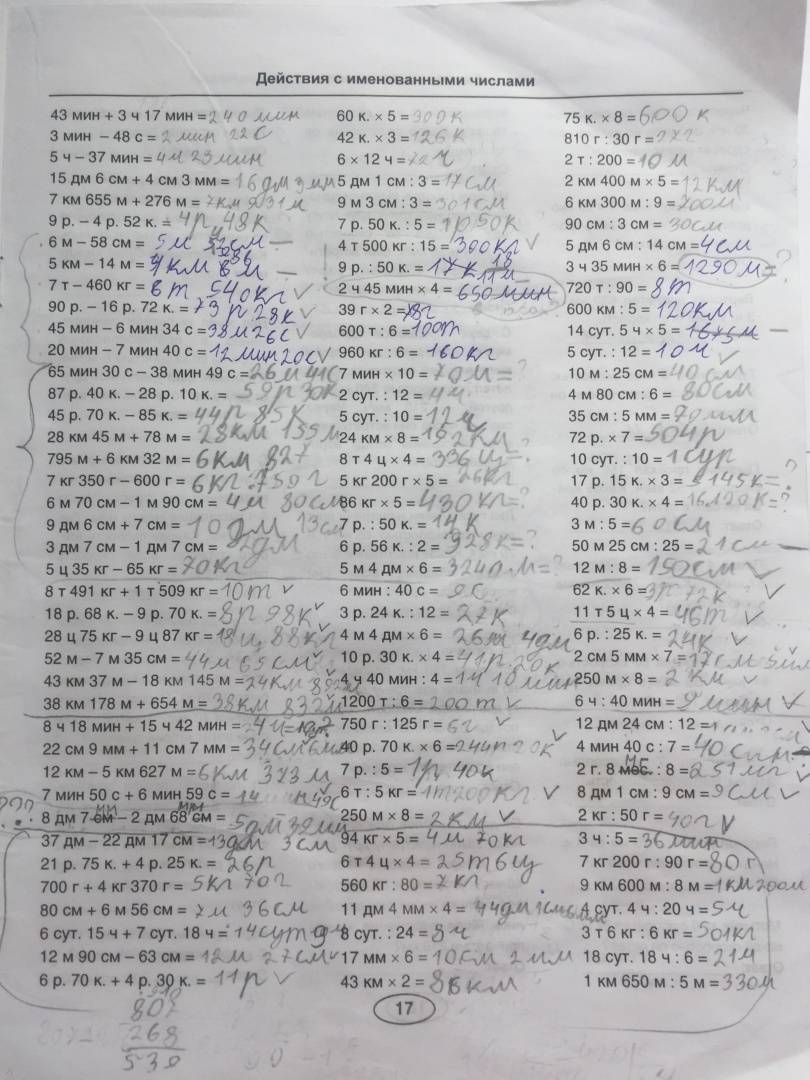 Действия с именованными числами
43 мин + 3 ч 17 мин = 240 мин
3 мин – 48 с = 2 мин 22 с
5 ч – 37 мин = 4 ч 23 мин
15 дм 6 см + 4 см 3 мм = 16 дм 3 мм
7 км 655 м + 276 м = 7 км 931 м
9 р. – 4 р. 52 к. = 4 р 48 к
6 м – 58 см = 5 м
5 км – 14 м =
7 т – 460 кг = 6 т 540 кг
90 р. – 16 р. 72 к. = 73 р 28 к
45 мин – 6 мин 34 с = 38 м 26 с
20 мин – 7 мин 40 с = 12 мин 20 с
65 мин 30 с – 38 мин 49 с = 26 м 41 с
87 р. 40 к. – 28 р. 10 к. = 59 р 30 к
45 р. 70 к. – 85 к. = 44 р 85 к
28 км 45 м + 78 м = 28 км
795 м + 6 км 32 м = 6 км 827
7 кг 350 г – 600 г = 6 кг 750 г
6 м 70 см – 1 м 90 см = 4 м 80 см
9 дм 6 см + 7 см = 10 дм 13 см
3 дм 7 см – 1 дм 7 см = 2 дм
5 ц 35 кг – 65 кг = 70 кг
8 т 491 кг + 1 т 509 кг = 10 т
18 р. 68 к. – 9 р. 70 к. = 8 р 98 к
28 ц 75 кг – 9 ц 87 кг = 18 ц 88 кг
52 м – 7 м 35 см = 44 м 65 см
43 км 37 м – 18 км 145 м = 24 км 892 м
38 км 178 м + 654 м = 38 км 832 м
8 ч 18 мин + 15 ч 42 мин = 24 ч
22 см 9 мм + 11 см 7 мм = 34 см 6 мм
12 км – 5 км 627 м = 6 км 373 м
7 мин 50 с + 6 мин 59 с = 14
8 дм 7 см – 2 дм 68 см = 5 дм 39 мм
37 дм – 22 дм 17 см = 13 дм 3 см
21 р. 75 к. + 4 р. 25 к. = 26 р
700 г + 4 кг 370 г = 5 кг 70 г
80 см + 6 м 56 см = 7 м 36 см
6 сут. 15 ч + 7 сут. 18 ч = 14 сут 9 ч
12 м 90 см – 63 см = 12 м 27 см
6 р. 70 к. + 4 р. 30 к. = 11 р
807
268
539
60 к. × 5 = 300 к
42 к. × 3 = 126 к
6 × 12 ч = 72 ч
5 дм 1 см : 3 = 17 см
9 м 3 см : 3 = 301 см
7 р. 50 к. : 5 = 1 р 50 к
4 т 500 кг : 15 = 300 кг
9 р. : 50 к. =
2 ч 45 мин × 4 = 650 мин
39 г × 2 =
600 т : 6 = 100 т
960 кг : 6 = 160 кг
7 мин × 10 = 70 м = ?
2 сут. : 12 = 4 ч
5 сут. : 10 = 12 ч
24 км × 8 = 192 км
8 т 4 ц × 4 = 336 ц = ?
5 кг 200 г × 5 = 26 кг
86 кг × 5 = 430 кг = ?
7 р. : 50 к. = 14 к
6 р. 56 к. : 2 = 328 к = ?
5 м 4 дм × 6 =
6 мин : 40 с = 9 с
3 р. 24 к. : 12 = 27 к
4 м 4 дм × 6 = 26 м 4 дм
10 р. 30 к. × 4 = 41 р 20 к
4 ч 40 мин : 4 = 1 ч 10 мин
1200 т : 6 = 200 т
750 г : 125 г = 6 г
40 р. 70 к. × 6 = 244 р 20 к
7 р. : 5 = 1 р 40 к
6 т : 5 кг = 1 т 200 кг
250 м × 8 = 2 км
94 кг × 5 = 4 м 70 кг
6 т 4 ц × 4 = 25 т 6 ц
560 кг : 80 = 7 кг
11 дм 4 мм × 4 = 44 дм 1 см 6 мм
8 сут. : 24 = 8 ч
17 мм × 6 = 10 см 2 мм
43 км × 2 = 86 км
75 к. × 8 = 600 к
810 г : 30 г = 27 г
2 т : 200 = 10 м
2 км 400 м × 5 = 12 км
6 км 300 м : 9 = 700 м
90 см : 3 = 30 см
5 дм 6 см : 14 см = 4 см
3 ч 35 мин × 6 = 1290 м = ?
720 т : 90 = 8 т
600 км : 5 = 120 км
14 сут. 5 ч × 5 =
5 сут. : 12 = 10 ч
10 м : 25 см = 40 см
4 м 80 см : 6 = 80 см
35 см : 5 мм = 70 мм
72 р. × 7 = 504 р
10 сут. : 10 = 1 сур
17 р. 15 к. × 3 = 5145 к = ?
40 р. 30 к. × 4 = 16120 к = ?
3 м : 5 = 60 см
50 м 25 см : 25 = 21 см
12 м : 8 = 150 см
62 к. × 6 = 3 р 72 к
11 т 5 ц × 4 = 46 т
6 р. : 25 к. = 24 к
2 см 5 мм × 7 = 17 см 5 мм
250 м × 8 = 2 км
6 ч : 40 мин = 9 мин
12 дм 24 см : 12 =
4 мин 40 с : 7 = 40 с
2 г. 8 мес. : 8 = 251 мг
8 дм 1 см : 9 см = 9 см
2 кг : 50 г = 40 г
3 ч : 5 = 36 мин
7 кг 200 г : 90 г = 80 г
9 км 600 м : 8 м = 1 км 200 м
4 сут. 4 ч : 20 ч = 5 ч
3 т 6 кг : 6 кг = 501 кг
18 сут. 18 ч : 6 = 21 ч
1 км 650 м : 5 м = 330 м
17